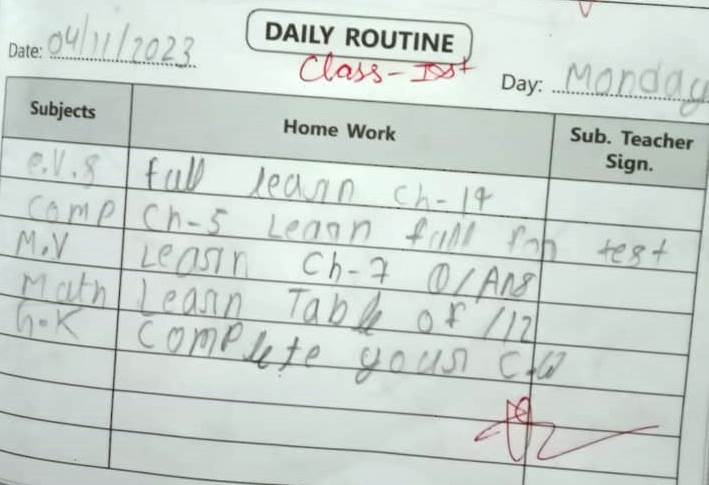 DAILY ROUTINE
Date: 04/11/2023
Class-Ist
Day: Monday
Subjects Home Work Sub. Teacher Sign.
e.V.S full learn ch-14
Comp Ch-5 Learn full for test
M.V Learn Ch-7 Q/Ans
Math Learn Table of 112
G.K Complete your C.W